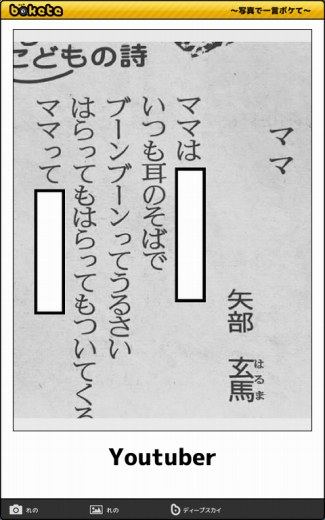 bokete
〜写真で一言ボケて〜
こどもの詩
ママ
矢部 玄馬
はるま
ママは
いつも耳のそばで
ブーンブーンってうるさい
はらってもはらってもついてくる
ママって
Youtuber
れの
れの
ディープスカイ